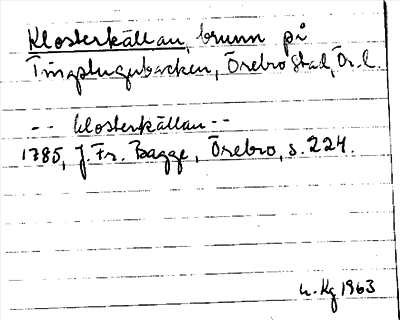 Klosterkällan, brunn på
Tingstugubacken, Örebro stad, Ör. l.
-- klosterkällan --
1785, J. Fr. Bagge, Örebro, s. 224.
1963